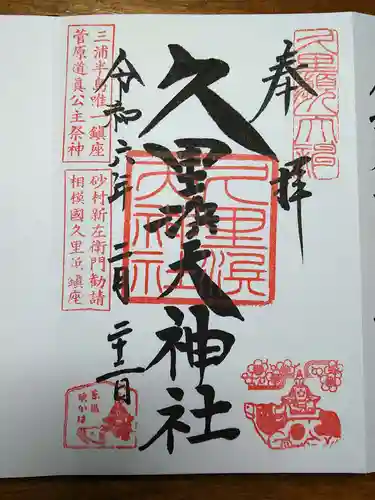 奉拝
久里濱天神社
久里濱天神社
令和六年二月二十二日
三浦半島唯一鎮座
菅原道真公主祭神
砂村新左衛門勧請
相模國久里浜鎮座